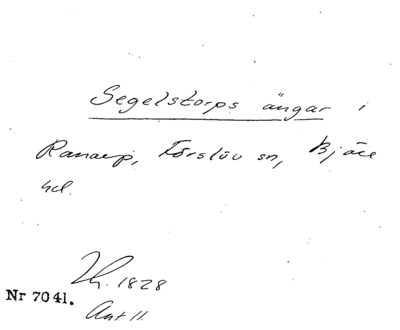 Segelstorps ängar i
Ranarp, Förslöv sn, Bjäre
hd.
Lh. 1828
Nr 7041.
Akt 11.